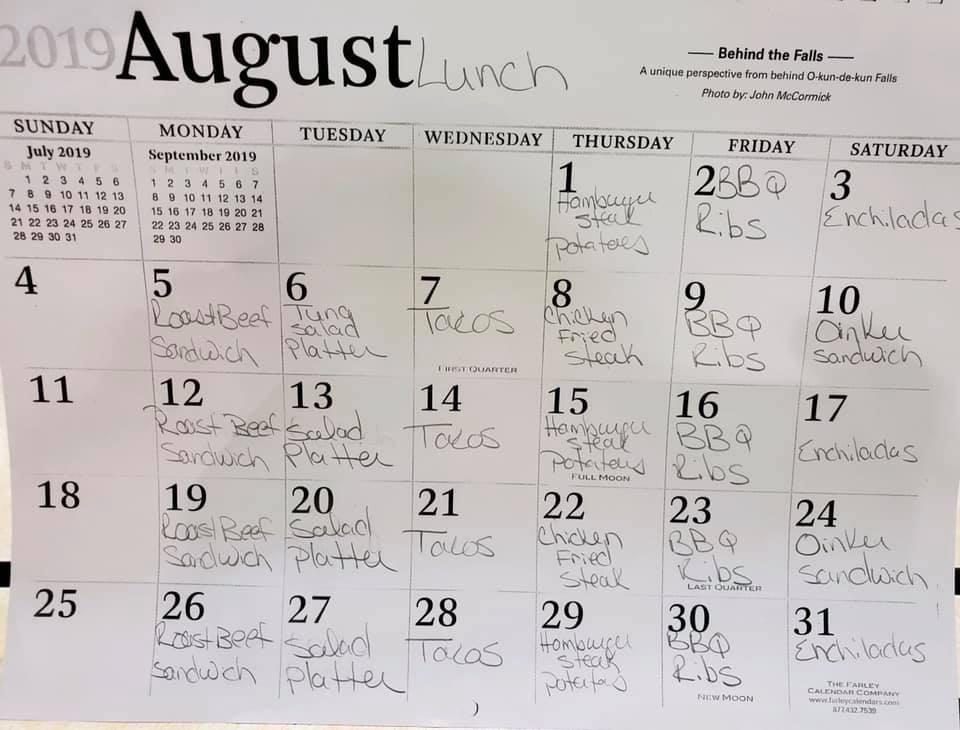 2019 August Lunch
Behind the Falls
A unique perspective from behind O-kun-de-kun Falls
Photo by: John McCormick
SUNDAY MONDAY TUESDAY WEDNESDAY THURSDAY FRIDAY SATURDAY
July 2019
S M T W T F S
1 2 3 4 5 6
7 8 9 10 11 12 13
14 15 16 17 18 19 20
21 22 23 24 25 26 27
28 29 30 31
September 2019
S M T W T F S
1 2 3 4 5 6 7
8 9 10 11 12 13 14
15 16 17 18 19 20 21
22 23 24 25 26 27 28
29 30
1
Hamburger
Steak
Potatoes
2 BBQ
Ribs
3
Enchiladas
4
5
Roast Beef
Sandwich
6
Tuna
Salad
Platter
7
Tacos
FIRST QUARTER
8
Chicken
Fried
Steak
9
BBQ
Ribs
10
Oinker
Sandwich
11
12
Roast Beef
Sandwich
13
Salad
Platter
14
Tacos
15
Hamburger
Steak
Potatoes
FULL MOON
16
BBQ
Ribs
17
Enchiladas
18
19
Roast Beef
Sandwich
20
Salad
Platter
21
Tacos
22
Chicken
Fried
Steak
23
BBQ
Ribs
LAST QUARTER
24
Oinker
Sandwich
25
26
Roast Beef
Sandwich
27
Salad
Platter
28
Tacos
29
Hamburger
Steak
Potatoes
30
BBQ
Ribs
NEW MOON
31
Enchiladas
THE FARLEY
CALENDAR COMPANY
www.farleycalendars.com
877.432.7539